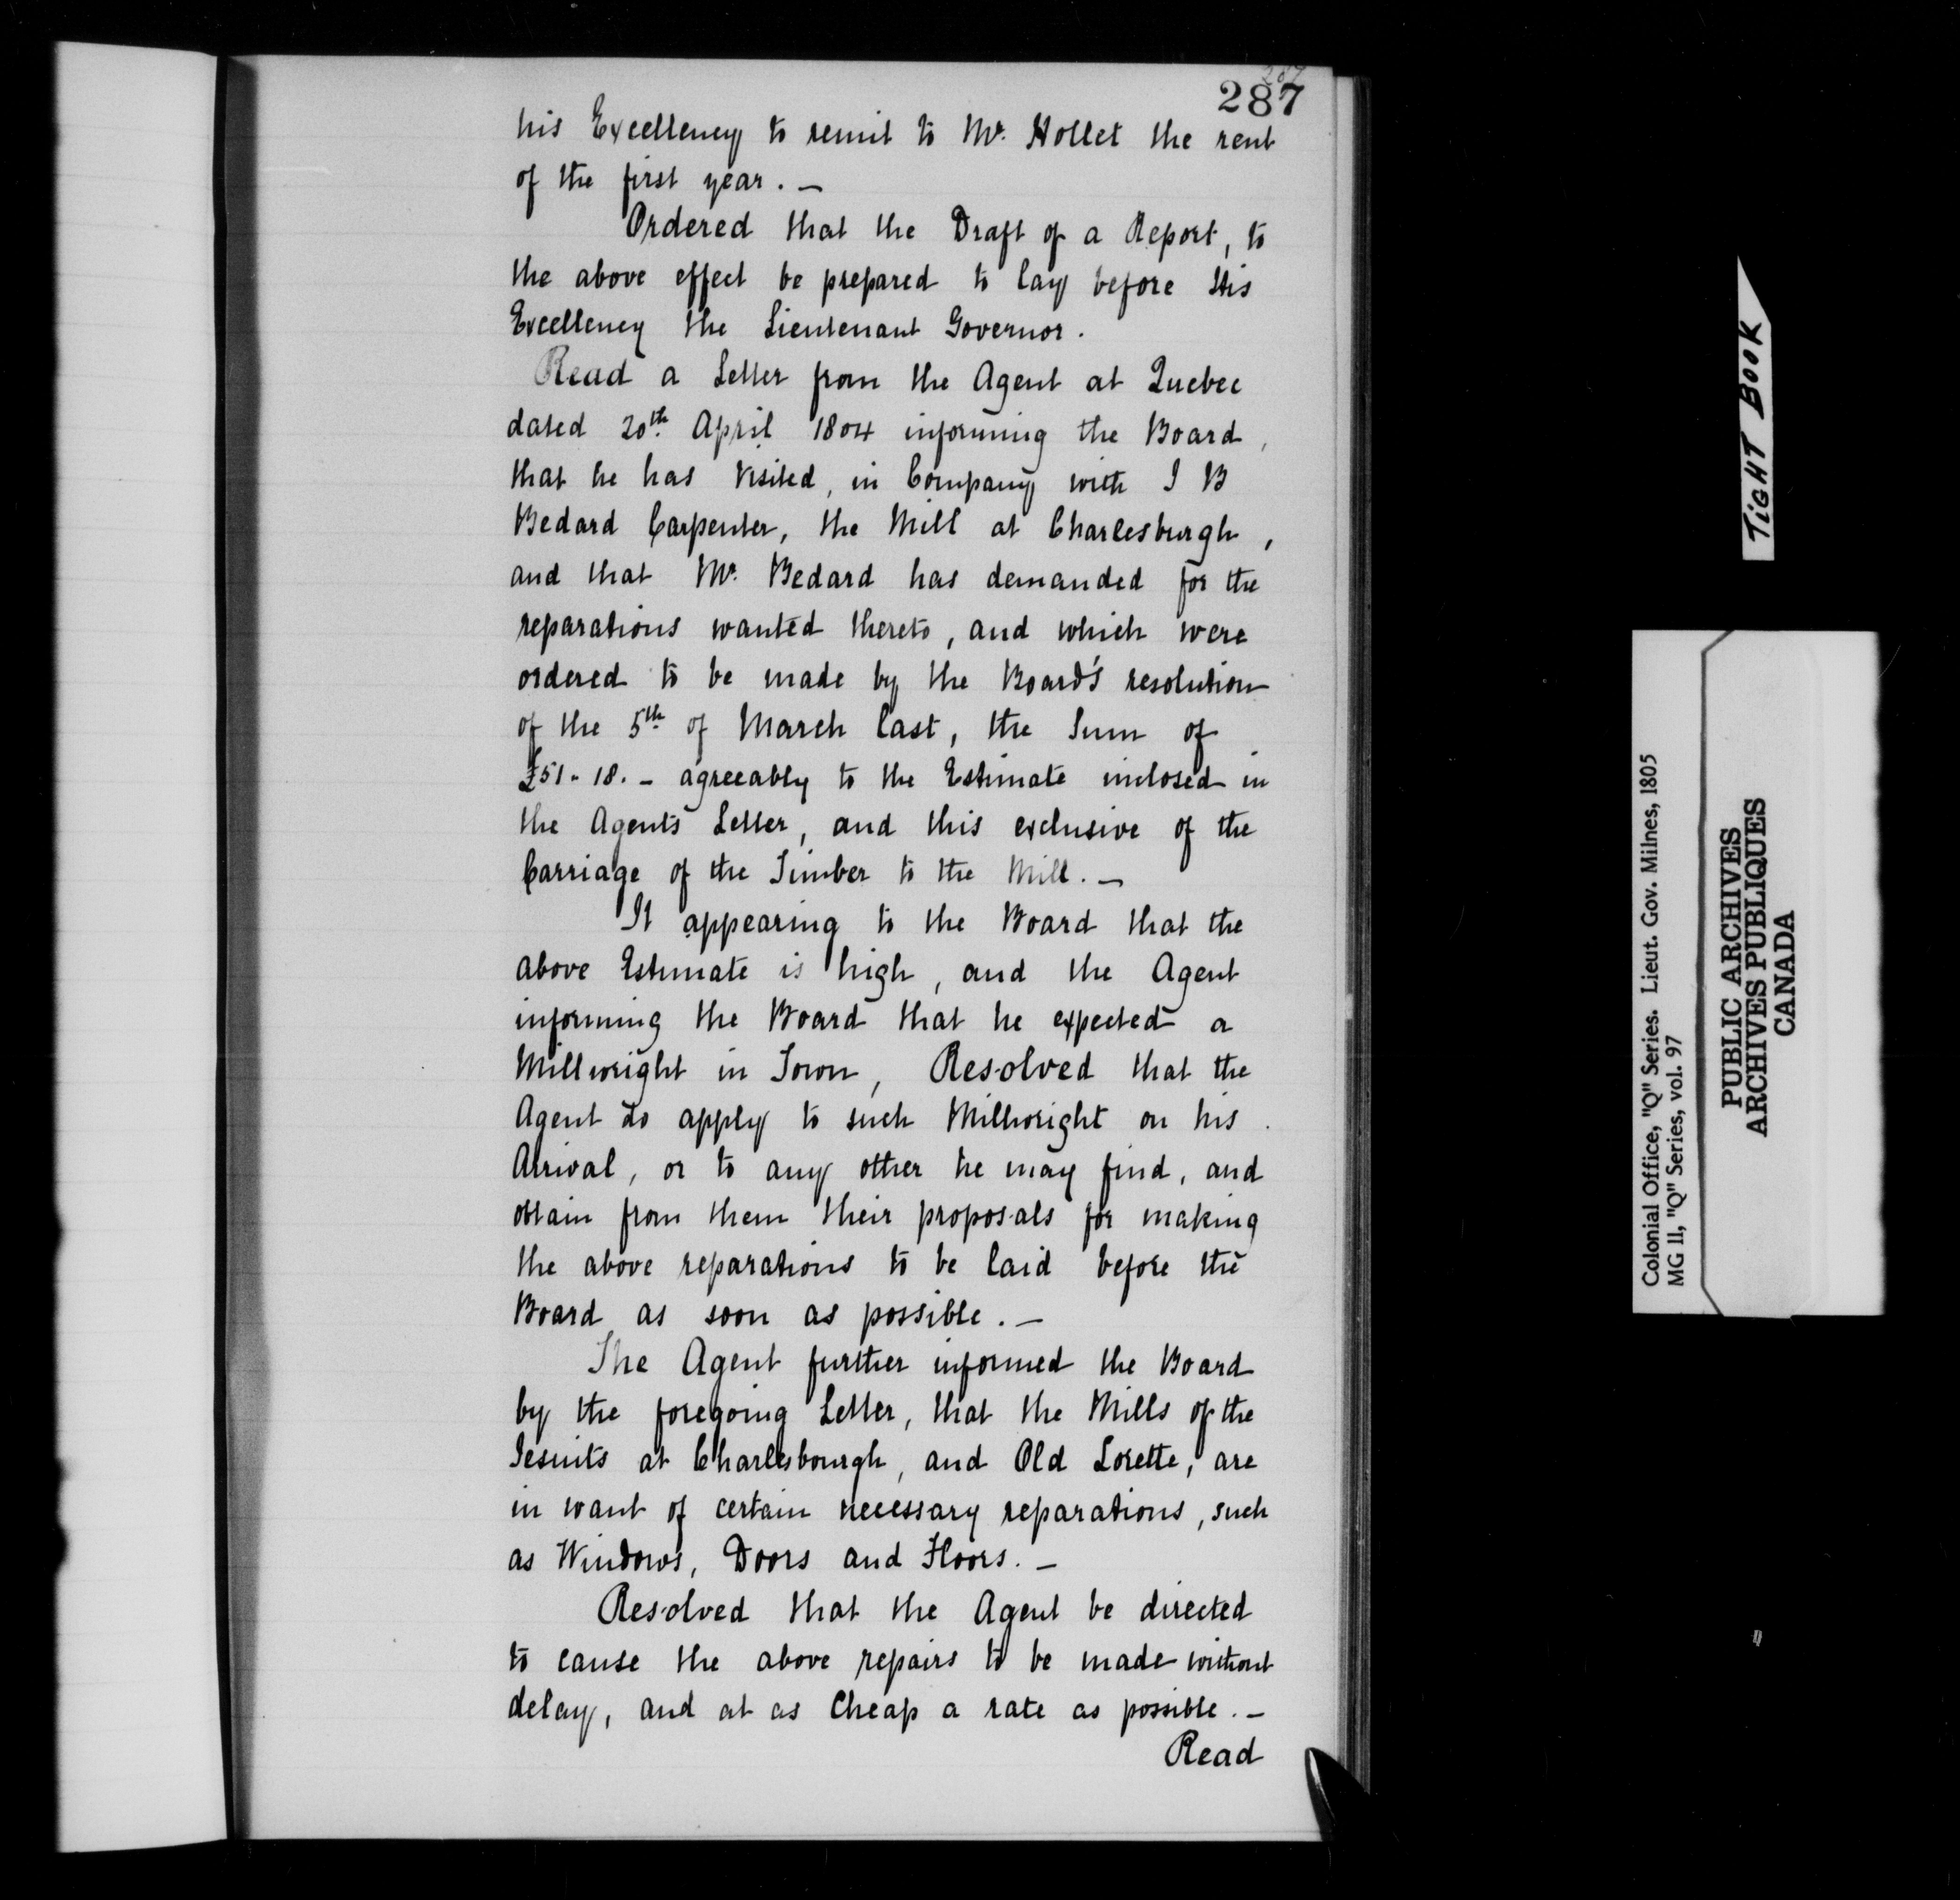 287
287
his Excellency to remit to Mr. Hollet the rent
of the first year. —
Ordered that the Draft of a Report, to
the above effect be prepared to lay before His
Excellency the Lieutenant Governor.
Read a Letter from the Agent at Quebec
dated 20th April 1804 informing the Board,
that he has visited, in Company with I B
Bedard Carpenter, the Mill at Charlesburgh,
and that Mr. Bedard has demanded for the
reparations wanted thereto, and which were
ordered to be made by the Board's resolution
of the 5th of March last, the Sum of
£51. 18. — agreeably to the Estimate inclosed in
the Agents Letter, and this exclusive of the
Carriage of the Timber to the Mill. —
It appearing to the Board that the
above Estimate is high, and the Agent
informing the Board that he expected a
Millwright in Town, Resolved that the
Agent do apply to such Millwright on his
Arrival, or to any other he may find, and
obtain from them their proposals for making
the above reparations to be laid before the
Board as soon as possible. —
The Agent further informed the Board
by the foregoing Letter, that the Mills of the
Jesuits at Charlesbourgh, and Old Lorette, are
in want of certain necessary reparations, such
as Windows, Doors and Floors. —
Resolved that the Agent be directed
to cause the above repairs to be made without
delay, and at as Cheap a rate as possible. —
Read
TIGHT BOOK
Colonial Office, "Q" Series. Lieut. Gov. Milnes, 1805
MG 11, "Q" Series, vol. 97
PUBLIC ARCHIVES
ARCHIVES PUBLIQUES
CANADA